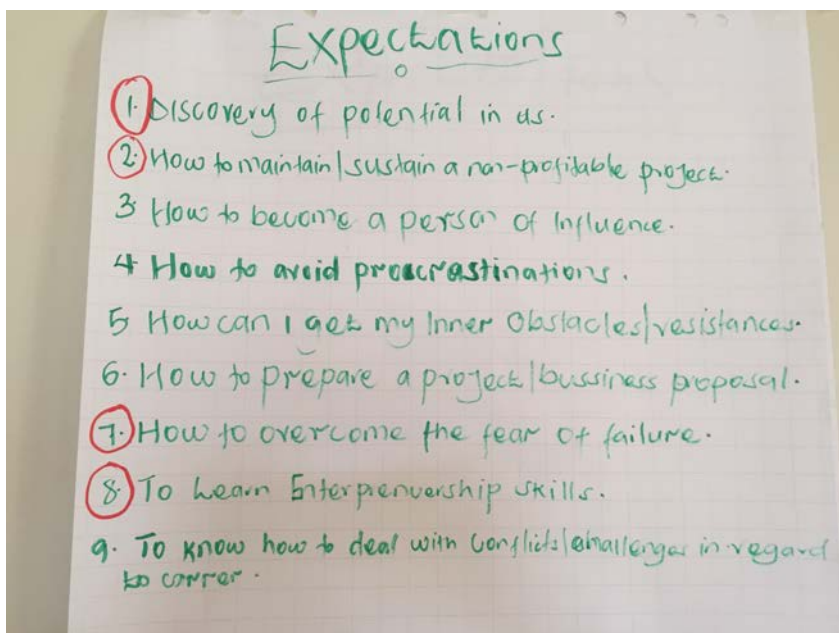 Expectations
1. Discovery of potential in us.
2. How to maintain/sustain a non-profitable project.
3. How to become a person of Influence.
4 How to avoid procrastinations.
5 How can I get my Inner Obstacles/resistances.
6. How to prepare a project/bussiness proposal.
7. How to overcome the fear of failure.
8. To Learn Enterprenuership skills.
9. To know how to deal with Conflicts/challenges in regard
to carrer.